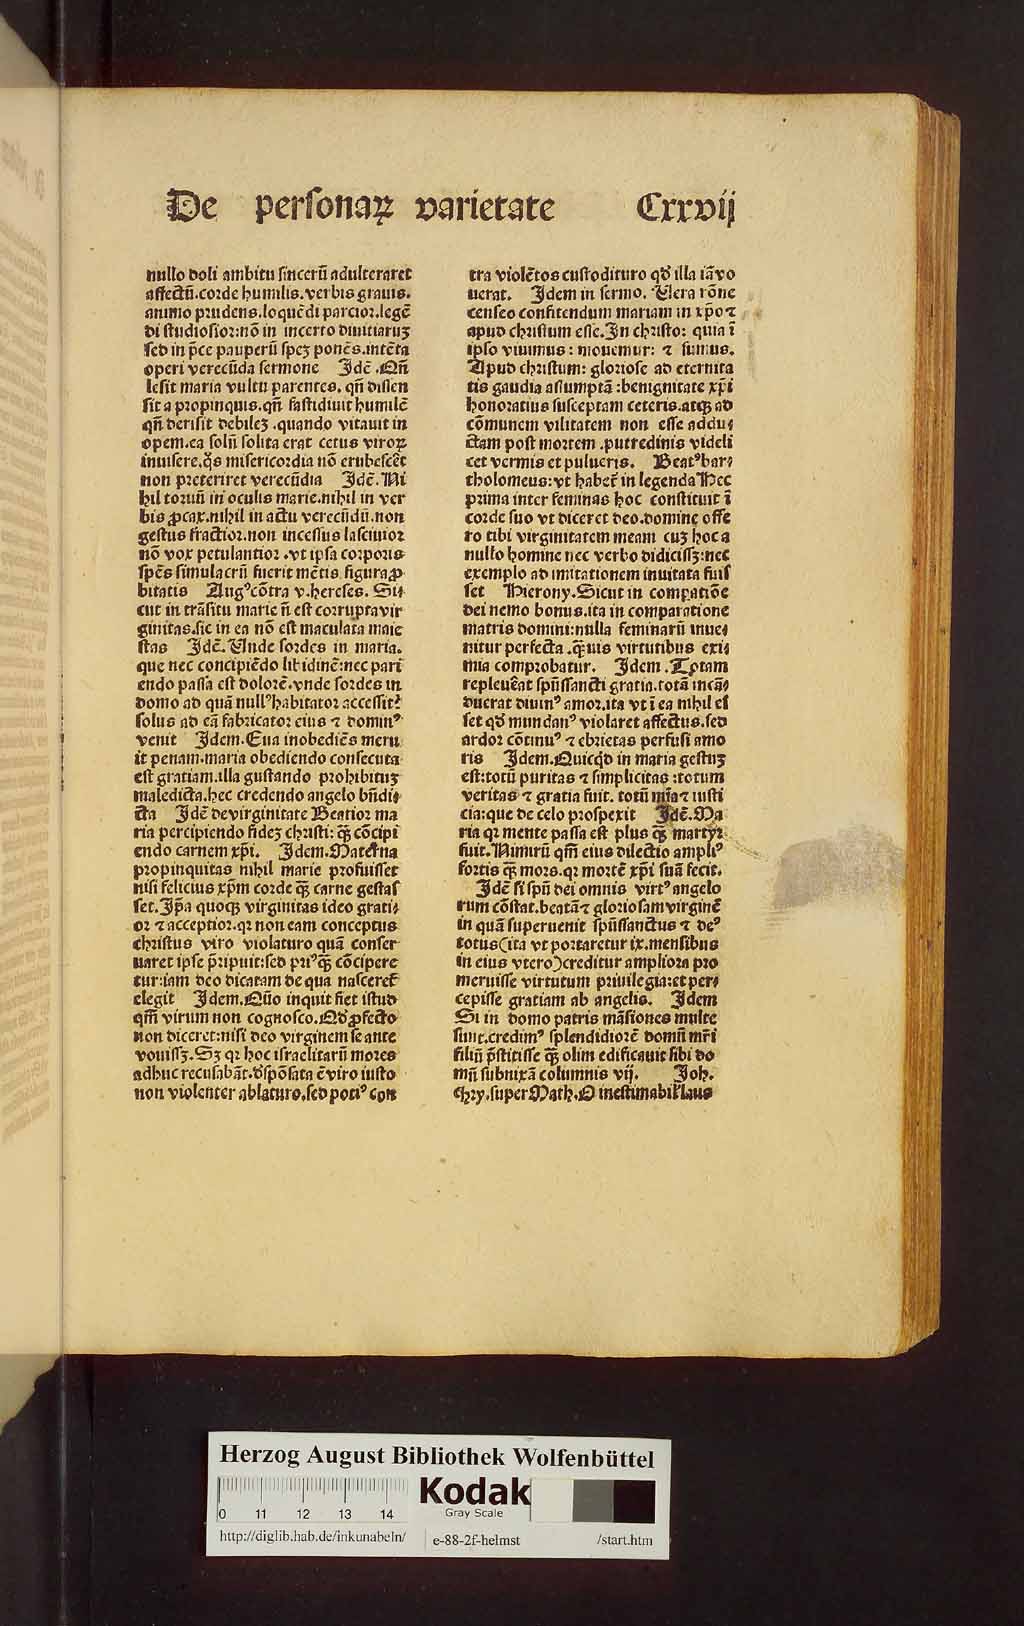 De personaꝝ varietate Cxxvij
nullo doli ambitu sincerū adulteraret
affectū.corde humilis.verbis grauis.
animo prudens.loquēdi parcior.legē
di studiosior:nō in incerto diuitiaruꝫ
sed in p̄ce pauperū speꝫ ponēs.intēta
operi verecūda sermone Idē .Qn̄
lesit maria vultu parentes. qn̄ dissen
sit a propinquis.qn̄ fastidiuit humilē
qn̄ derisit debileꝫ .quando vitauit in
opem.ea solū solita erat cetus viroꝝ
inuisere.q̄s misericordia nō erubescēt
non preteriret verecūdia Idē. Ni
hil toruū in oculis marie.nihil in ver
bis ꝓcax.nihil in actu verecūdū.non
gestus fractior.non incessus lasciuior
nō vox petulantior .vt ipsa corporis
spēs simulacrū fuerit mētis figura ꝓ
bitatis Augꝰ cōtra v.hereses. Si⸗
cut in trāsitu marie n̄ est corrupta vir
ginitas.sic in ea nō est maculata maie
stas Idē. Unde sordes in maria.
que nec concipiēdo libidinē:nec pari
endo passa est dolorē.vnde sordes in
domo ad quā nullꝰ habitator accessit?
solus ad eā fabricator eius ⁊ dominꝰ
venit Idem. Eua inobediēs meru
it penam.maria obediendo consecuta
est gratiam.illa gustando prohibituꝫ
maledicta.hec credendo angelo bn̄di⸗
cta Idē de virginitate Beatior ma
ria percipiendo fideꝫ christi: qꝫ̄ cōcipi
endo carnem xp̄i. Idem. Materna
propinquitas nihil marie profuisset
nisi felicius xp̄m corde qꝫ̄ carne gestas
set. Ip̄a quoqꝫ virginitas ideo grati⸗
or ⁊ acceptior.qꝛ non eam conceptus
christus viro violaturo quā conser
uaret ipse p̄ripuit:sed priꝰ qꝫ̄ cōcipere
tur:iam deo dicatam de qua nasceret̄
elegit Idem. Quō inquit fiet istud
qm̄ virum non cognosco. Qd̄ ꝓfecto
non diceret:nisi deo virginem se ante
vouissꝫ. Sꝫ qꝛ hoc israelitarū mores
adhuc recusabāt.dspōsata ē viro iusto
non violenter ablaturo.sed potiꝰ con
tra violētos custodituro qd̄ illa iā vo
uerat. Idem in sermo. Uera rōne
censeo confitendum mariam in xp̄o ⁊
apud christum esse. In christo: quia ī
ipso viuimus: mouemur: ⁊ sumus.
Apud christum: gloriose ad eternita
tis gaudia assumptā :benignitate xp̄i
honoratius susceptam ceteris.atqꝫ ad
cōmunem vilitatem non esse addu⸗
ctam post mortem .putredinis videli
cet vermis et pulueris. Beatꝰ bar⸗
tholomeus:vt habet̄ in legenda Hec
prima inter feminas hoc constituit ī
corde suo vt diceret deo.domine offe
ro tibi virginitatem meam cuꝫ hoc a
nullo homine nec verbo didicissꝫ:nec
exemplo ad imitationem inuitata fuis
set Hierony. Sicut in compatiōe
dei nemo bonus.ita in comparatione
matris domini:nulla feminarū inue⸗
nitur perfecta .qꝫ̄uis virtutibus exi⸗
mia comprobatur. Idem . Totam
repleuēat spūssancti gratia.totā incā⸗
duerat diuinꝰ amor.ita vt ī ea nihil es
set qd̄ mundanꝰ violaret affectus.sed
ardor cōtinuꝰ ⁊ ebrietas perfusi amo
ris Idem. Quicqd̄ in maria gestuꝫ
est:totū puritas ⁊ simplicitas :totum
veritas ⁊ gratia fuit. totū mīa ⁊ iusti
cia:que de celo prospexit Idē. Ma
ria qꝛ mente passa est plus qꝫ̄ martyr
fuit. Nimirū qm̄ eius dilectio ampliꝰ
fortis qꝫ̄ mors.qꝛ mortē xp̄i suā fecit.
Idē si spū dei omnis virtꝰ angelo
rum cōstat.beatā ⁊ gloriosam virginē
in quā superuenit spūssanctus ⁊ deꝰ
totus(ita vt portaretur ix.mensibus
in eius vtero)creditur ampliora pro
meruisse virtutum priuilegia:et per⸗
cepisse gratiam ab angelis. Idem
Si in domo patris māsiones multe
sunt.credimꝰ splendidiorē domū mr̄i
filiū p̄stitisse qꝫ̄ olim edificauit sibi do
mū subnixā columnis vij. Joh.
Chry.super Math. O inestimabiꝉ laus
Herzog August Bibliothek Wolfenbüttel
0 11 12 13 14
Kodak
Gray Scale
http://diglib.hab.de/inkunabeln/ e-88-2f-helmst /start.htm